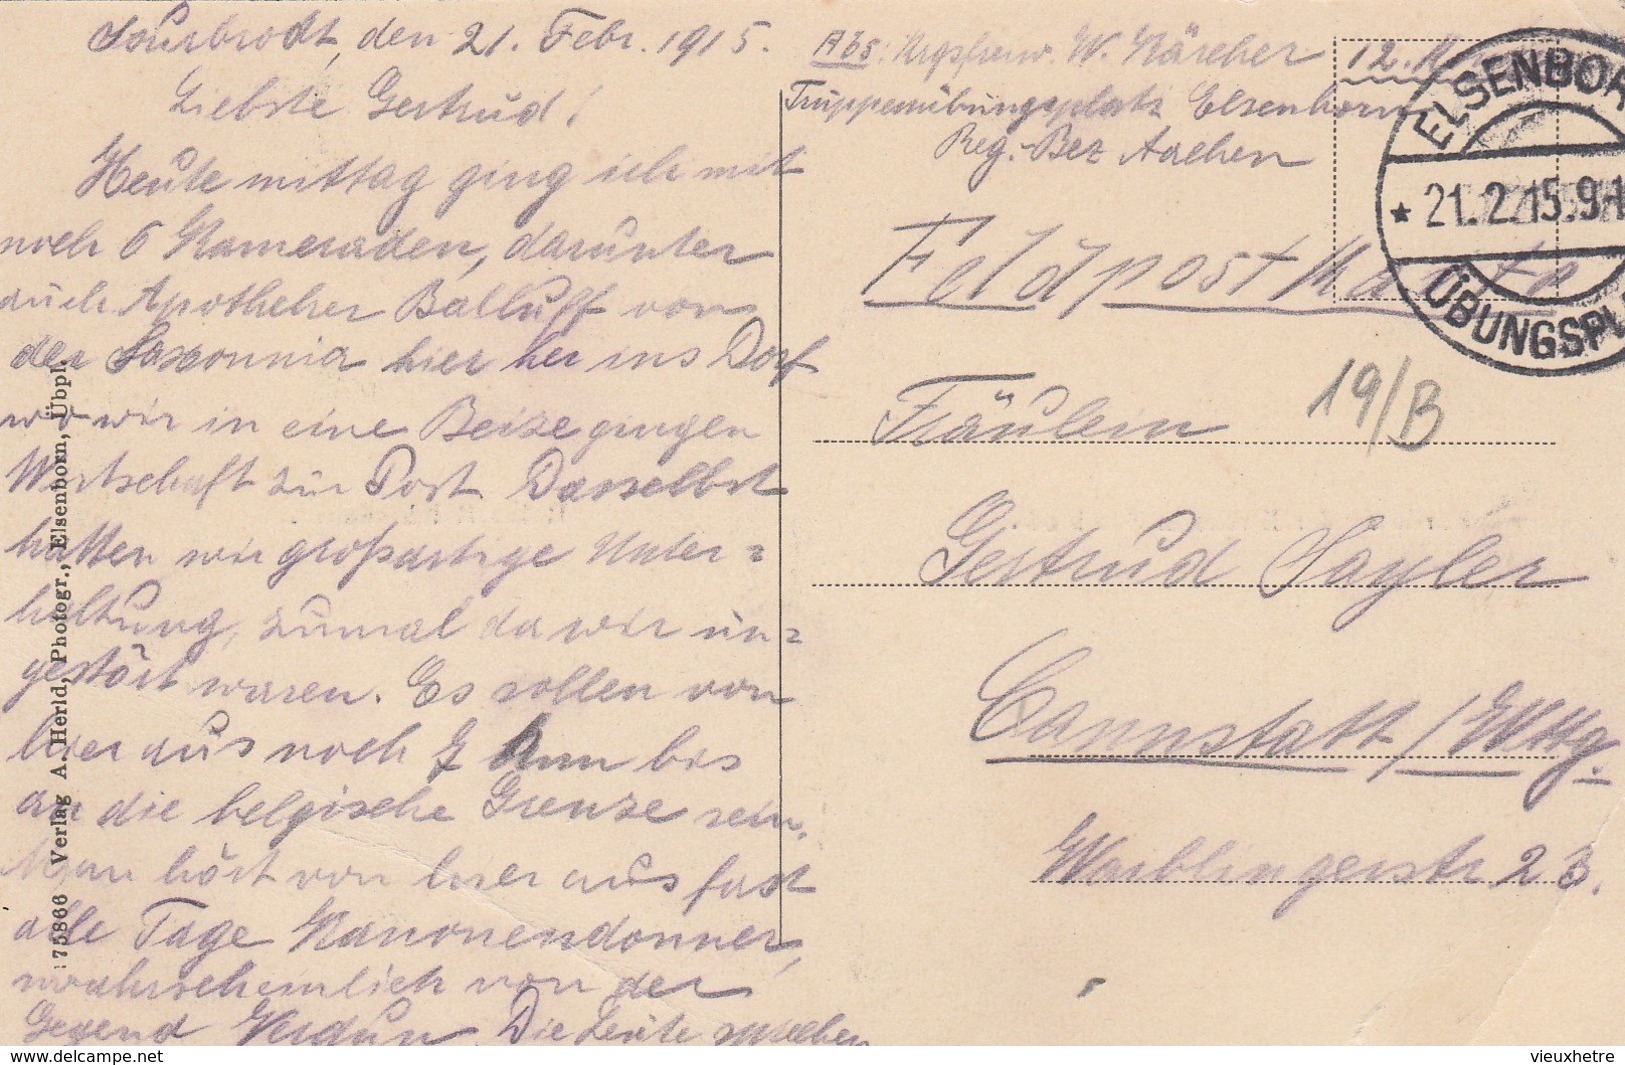 Sourbrodt, den 21. Febr. 1915.
Liebste Gertrud!
Heute mittag ging ich mit
noch 6 Kameraden, darunter
auch Apotheker Balluff von
der Saxonnia hier her ins Dorf
wo wir in eine Beize gingen
Wirtschaft zur Post. Dasselbst
hatten wir großartige Unter=
haltung, zumal da wir un=
gestört waren. Es sollen von
hier aus noch 7 km bis
an die belgische Grenze sein.
Man hört von hier aus fast
alle Tage Kanonendonner,
wahrscheinlich von der
Gegend Verdun. Die Leute
75866 Verlag A. Herld, Photogr., Elsenborn, Übpl.
Abs: W. Kärcher 12. K.
Truppenübungsplatz Elsenborn
Reg.-Bez Aachen
ELSENBOR
* 21.2.15.9-1
ÜBUNGSPL
Feldpostkarte
19/B
Fräulein
Gertrud Sayler
Cannstatt / Wttg.
Waiblingerstr 23.
vieuxhetre